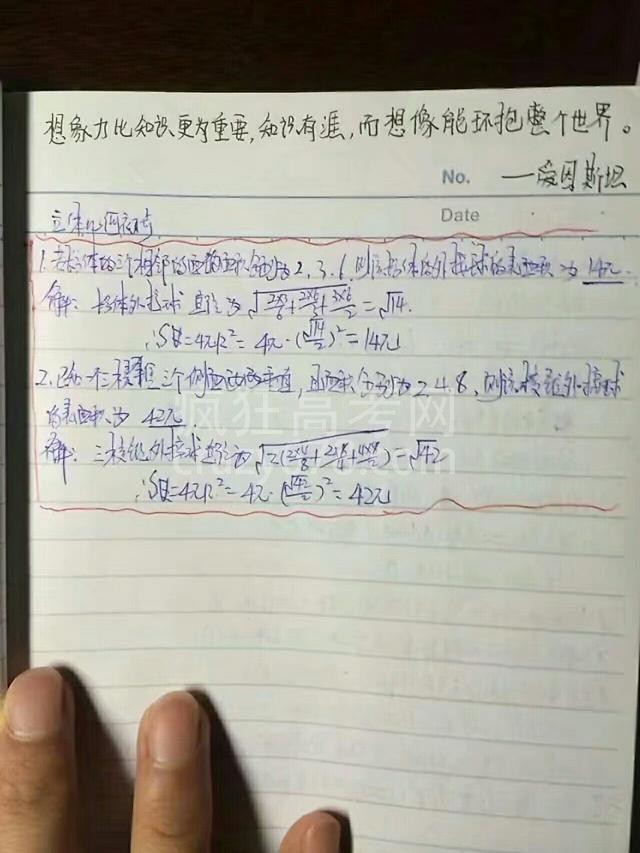 想象力比知识更为重要,知识有涯,而想像能环抱整个世界。
No. —爱因斯坦
Date
立体几何
1.若长方体的三个相邻的面的面积分别为2,3,6,则该长方体的外接球的表面积为 14π.
解:长方体外接球直径为√(2×3/6+2×6/3+3×6/2)=√14.
∴S球=4πR²=4π·(√14/2)²=14π
2.已知一个三棱锥三个侧面两两垂直,且面积分别为2.4.8,则该三棱锥外接球
的表面积为 42π.
解:三棱锥外接球直径为√2(2×4/8+2×8/4+4×8/2)=√42
∴S球=4πR²=4π·(√42/2)²=42π
疯狂高考网